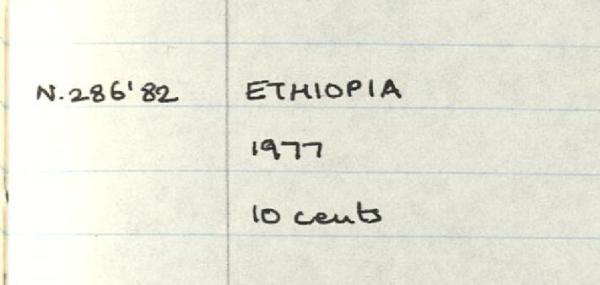 N.286'82 ETHIOPIA
1977
10 cents